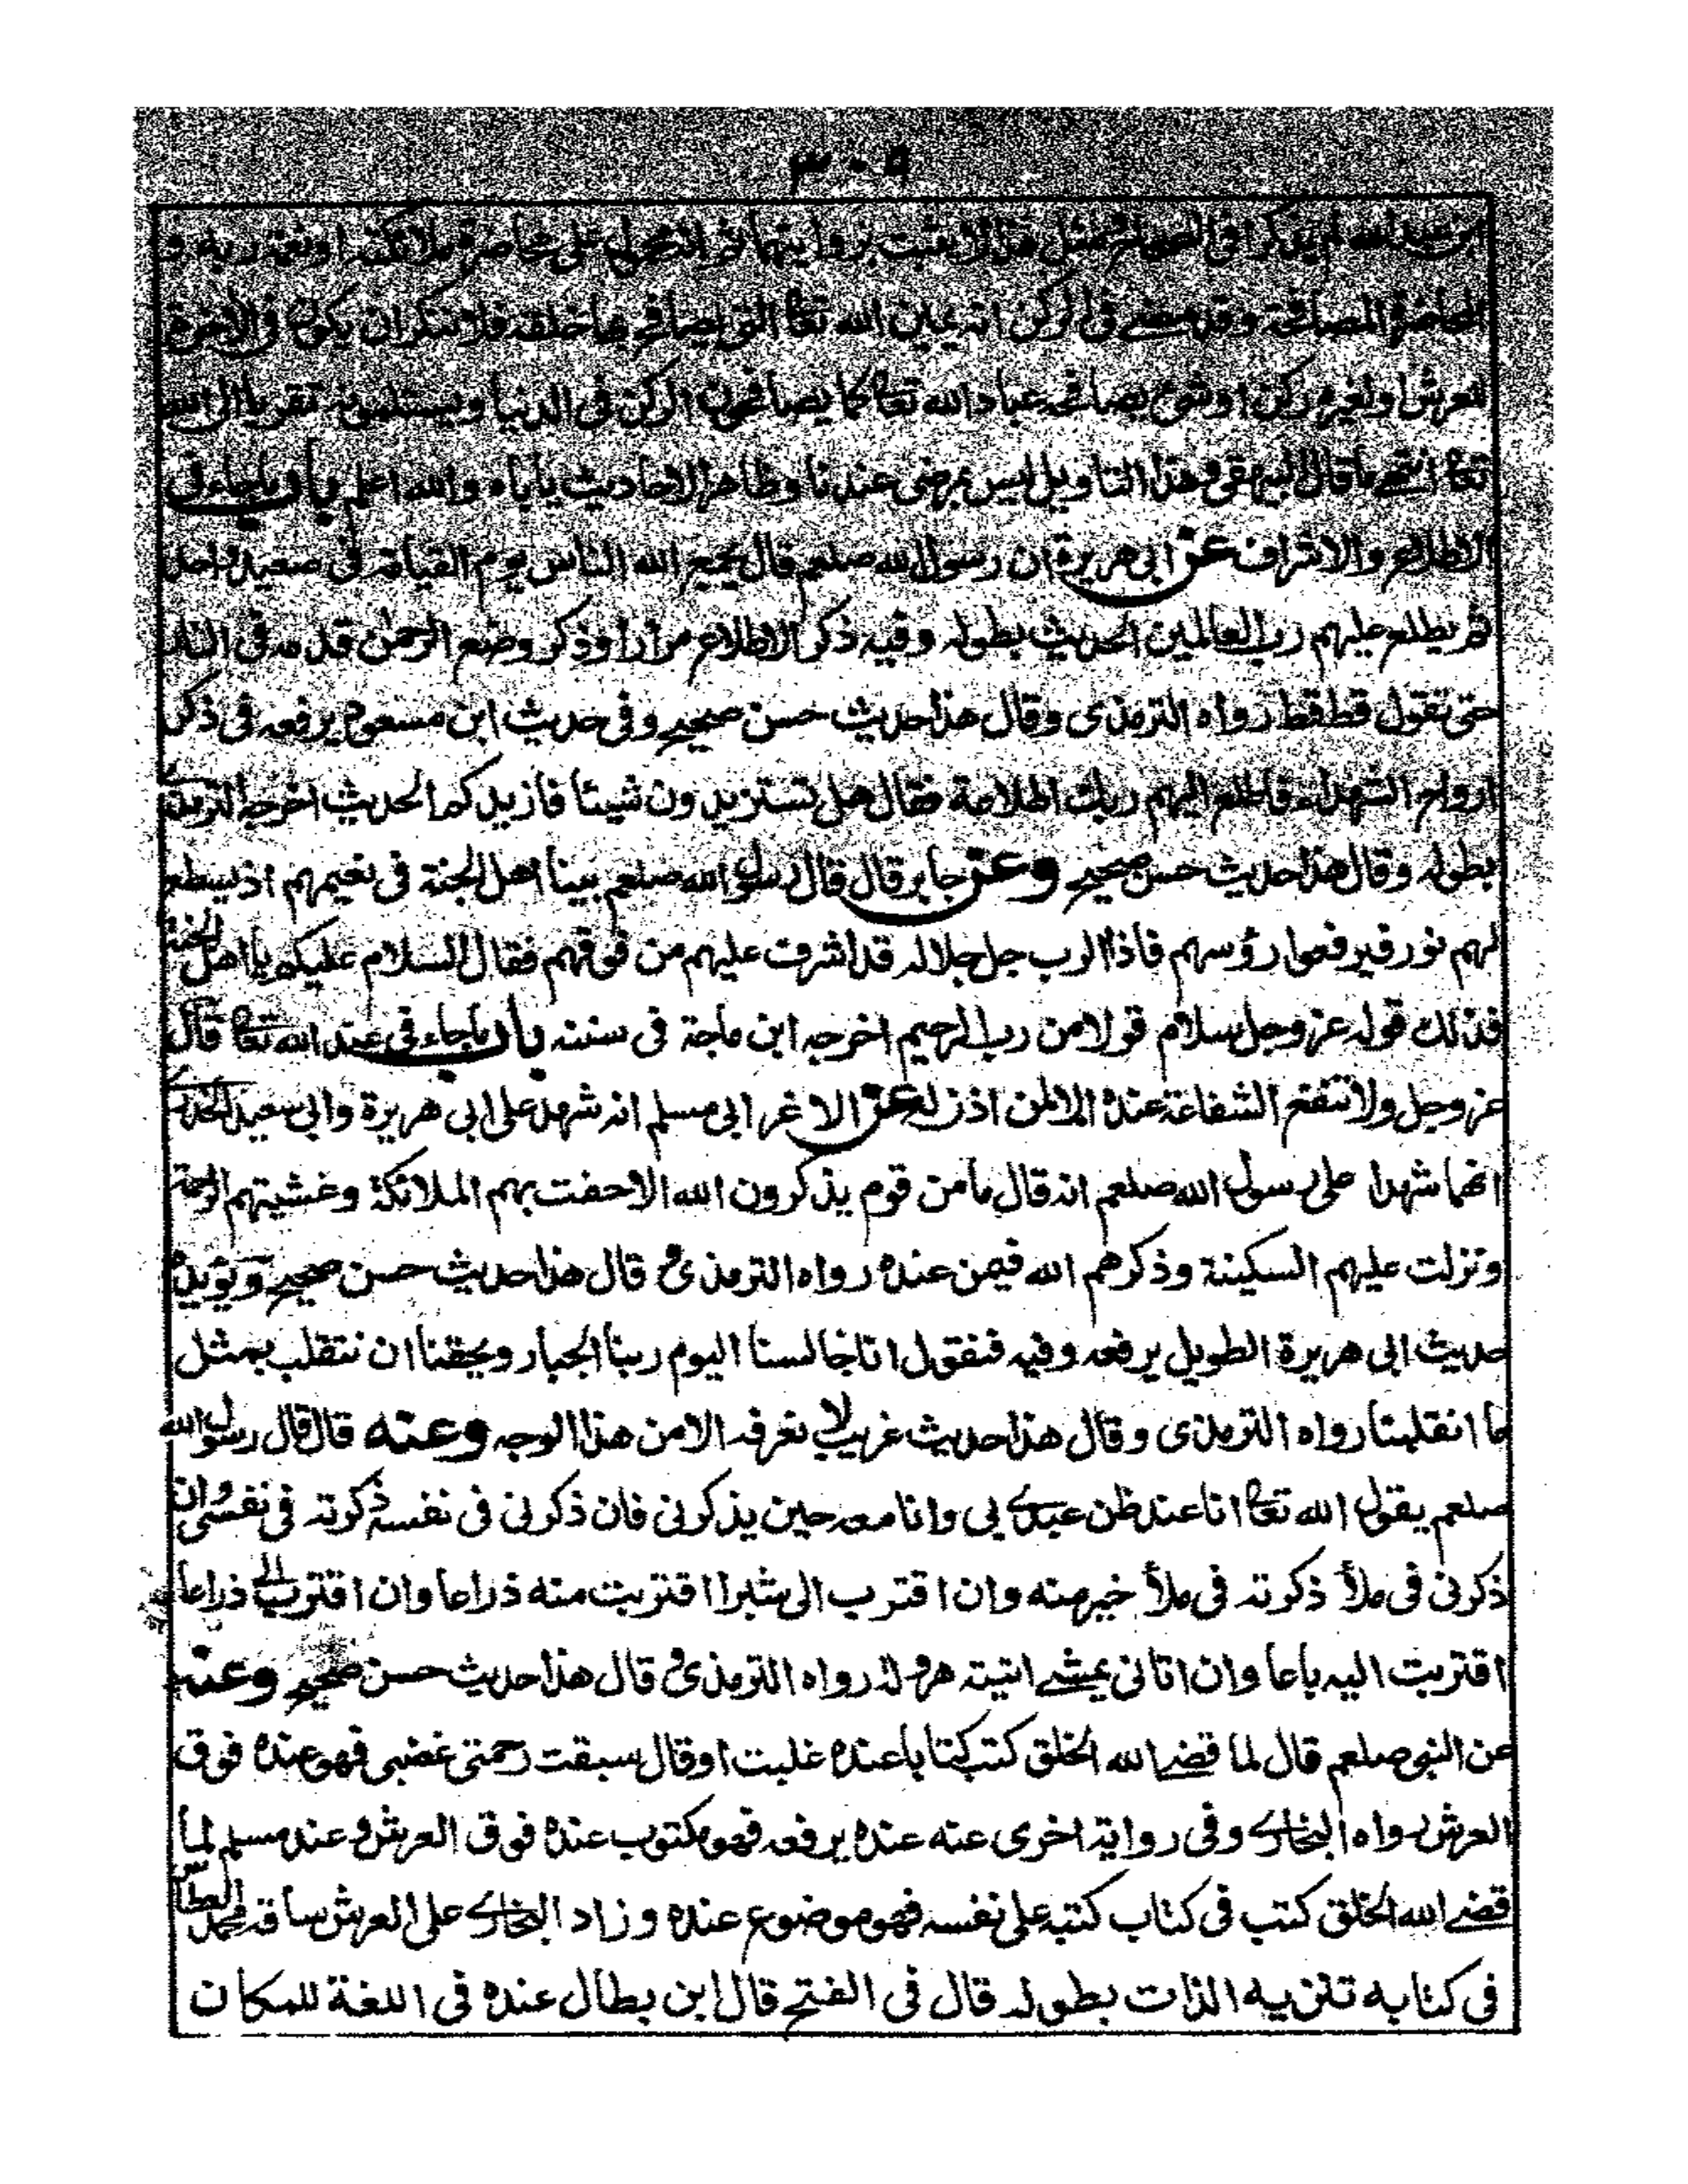 ٣٠٥
ابن عبد الله لم يذكرا في الصحابة ومثل هذا لا يثبت بروايتهما ثم انه محمول على خاصرة ملائكته او نعمة ربه و
الخاصرة المصافحة وقد مضى في الركن انه يمين الله تعالى التي يصافح بها خلقه فلا ننكر ان يكون في الآخرة
للعرش او لغيره ركن او شئ يصافحه عباد الله تعالى كما يصافحون الركن في الدنيا ويستلمونه تقربا الى الله
تعالى انتهى ما قال البيهقي وهذا التاويل ليس بمرضى عندنا وظاهر الاحاديث ياباه والله اعلم باب ما جاء فى
الاطلاع والاشراف عن ابى هريرة ان رسول الله صلعم قال يجمع الله الناس يوم القيامة فى صعيد واحد
ثم يطلع عليهم رب العالمين الحديث بطوله وفيه ذكر الاطلاع مرارا وذكر وضع الرحمٰن قدمه فى النار
حتى تقول قط قط رواه الترمذى وقال هذا حديث حسن صحيح وفى حديث ابن مسعود يرفعه فى ذكر
ارواح الشهداء فاطلع اليهم ربك اطلاعة فقال هل تستزيدون شيئا فازيدكم الحديث اخرجه الترمذى
بطوله وقال هذا حديث حسن صحيح وعن جابر قال قال رسول الله صلعم بينا اهل الجنة فى نعيمهم اذ سطع
لهم نور فيرفعوا رؤسهم فاذا الرب جل جلاله قد اشرف عليهم من فوقهم فقال السلام عليكم يا اهل الجنة
فذلك قوله عز وجل سلام قولا من رب الرحيم اخرجه ابن ماجة فى سننه باب ما جاء فى عند الله تعالى قال
عز وجل ولا تنفع الشفاعة عنده الا لمن اذن له عن الاغر ابى مسلم انه شهد على ابى هريرة وابى سعيد الخدرى
انهما شهدا على رسول الله صلعم انه قال ما من قوم يذكرون الله الا حفت بهم الملائكة وغشيتهم الرحمة
ونزلت عليهم السكينة وذكرهم الله فيمن عنده رواه الترمذى و قال هذا حديث حسن صحيح ويؤيده
حديث ابى هريرة الطويل يرفعه وفيه فنقول انا جالسنا اليوم ربنا الجبار ويحقنا ان ننقلب بمثل
ما انقلبنا رواه الترمذى وقال هذا حديث غريب لا نعرفه الا من هذا الوجه وعنه قال قال رسول الله
صلعم يقول الله تعالى انا عند ظن عبدى بى وانا معه حين يذكرنى فان ذكرنى فى نفسه ذكرته فى نفسى وان
ذكرنى فى ملأ ذكرته فى ملأ خير منه وان اقترب الى شبرا اقتربت منه ذراعا وان اقترب الى ذراعا
اقتربت اليه باعا وان اتانى يمشے اتيته هرولة رواه الترمذى و قال هذا حديث حسن صحيح وعنه
عن النبى صلعم قال لما قضے الله الخلق كتب كتابا عنده غلبت او قال سبقت رحمتى غضبى فهو عنده فوق
العرش رواه البخارى وفى رواية اخرى عنه عنده يرفعه فهو مكتوب عنده فوق العرش وعند مسلم لما
قضے الله الخلق كتب فى كتاب كتبه على نفسه فهو موضوع عنده وزاد البخارى على العرش ساقه محمد العطاس
فى كتابه تنزيه الذات بطوله قال فى الفتح قال ابن بطال عنده فى اللغة للمكان